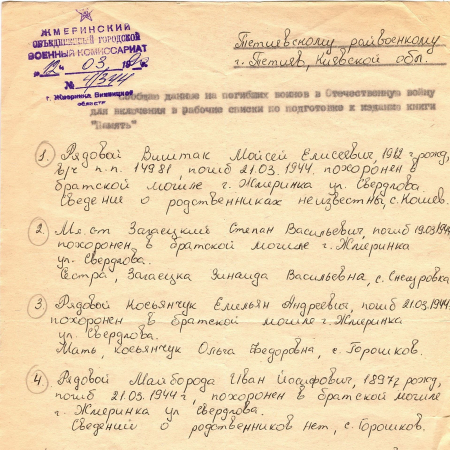 ЖМЕРИНСКИЙ
ОБЪЕДИНЕННЫЙ ГОРОДСКОЙ
ВОЕННЫЙ КОМИССАРИАТ
"12" 03. 19
№ 4/344
г. Жмеринка Винницкой
области
Тетиевскому райвоенкому
г. Тетиев, Киевской обл.
Сообщаю данные на погибших воинов в Отечественную войну
для включения в рабочие списки по подготовке к изданию книги
"Память"
1. Рядовой Виштак Мойсей Елисеевич, 1912 г рожд,
в/ч п.п. 14981, погиб 21.03.1944, похоронен в
братской могиле г. Жмеринка ул. Свердлова.
Сведение о родственниках неизвестны, с. Кошев.
2. Мл. с-т Загаецкий Степан Васильевич, погиб 19.03.1944,
похоронен в братской могиле г. Жмеринка
ул. Свердлова.
Сестра, Загаецка Зинаида Васильевна, с. Снегуровка
3. Рядовой Косьянчук Емильян Андреевич, погиб 21.03.1944,
похоронен в братской могиле г. Жмеринка
ул. Свердлова.
Мать, Косьянчук Ольга Федоровна, с. Горошков.
4. Рядовой Майборода Иван Иосифович, 1897 г рожд,
погиб 21.03.1944 г, похоронен в братской могиле
г. Жмеринка ул Свердлова.
Сведений о родственников нет, с. Горошков.